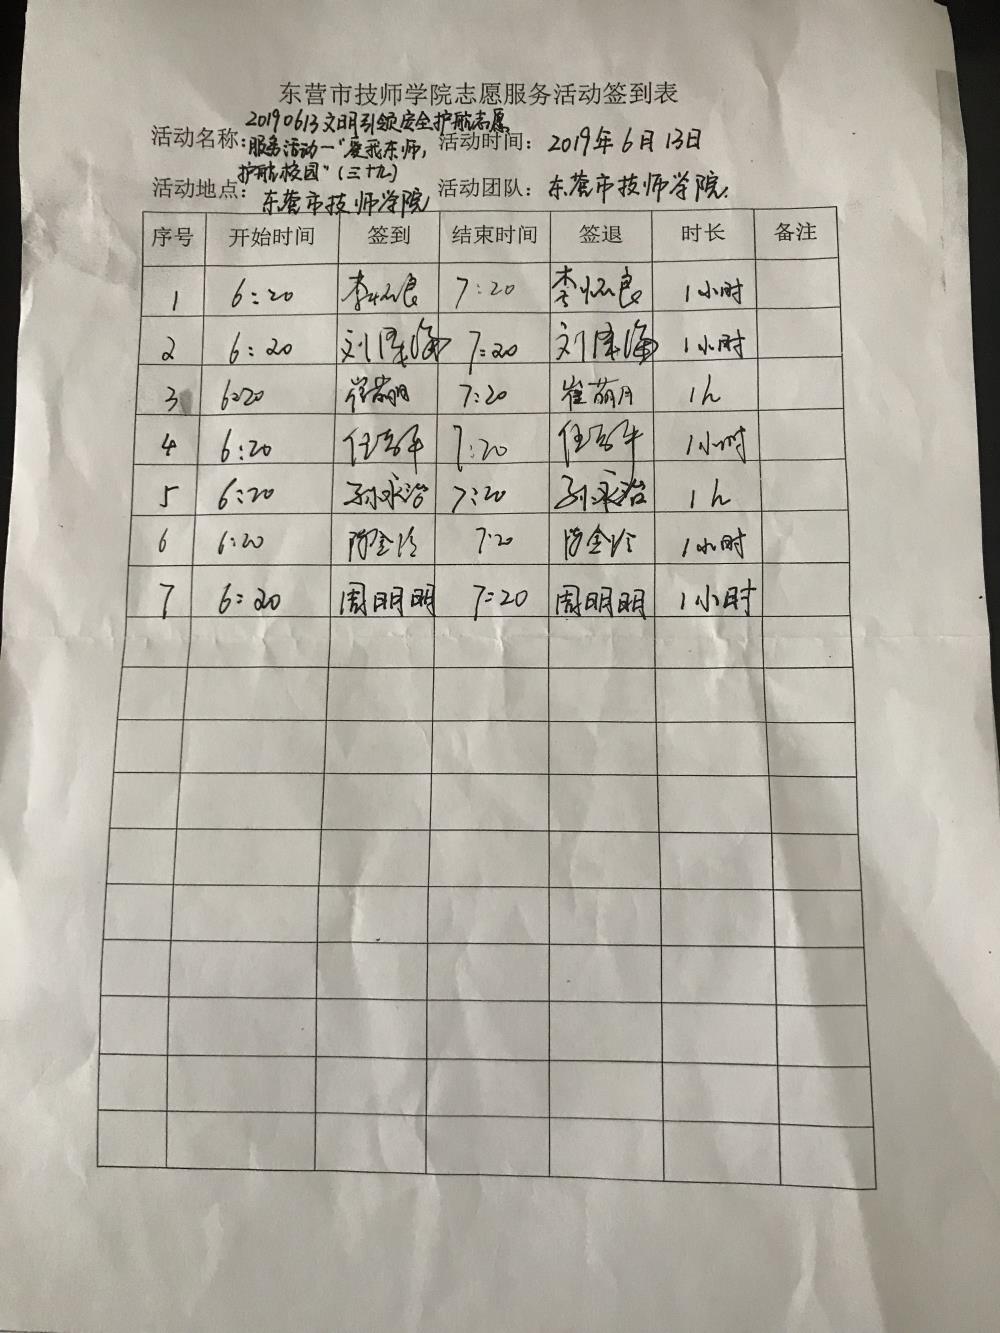 东营市技师学院志愿服务活动签到表
活动名称: 20190613文明引领安全护航志愿
服务活动一"爱我东师, 活动时间: 2019年6月13日
护航校园"(三十九)
活动地点: 东营市技师学院 活动团队: 东营市技师学院.
序号 开始时间 签到 结束时间 签退 时长 备注
1 6:20 李怀良 7:20 李怀良 1小时
2 6:20 刘泽海 7:20 刘泽海 1小时
3 6:20 崔萌月 7:20 崔萌月 1h
4 6:20 7:20 1小时
5 6:20 孙永治 7:20 孙永治 1h
6 6:20 陈金玲 7:20 陈金玲 1小时
7 6:20 周明明 7:20 周明明 1小时